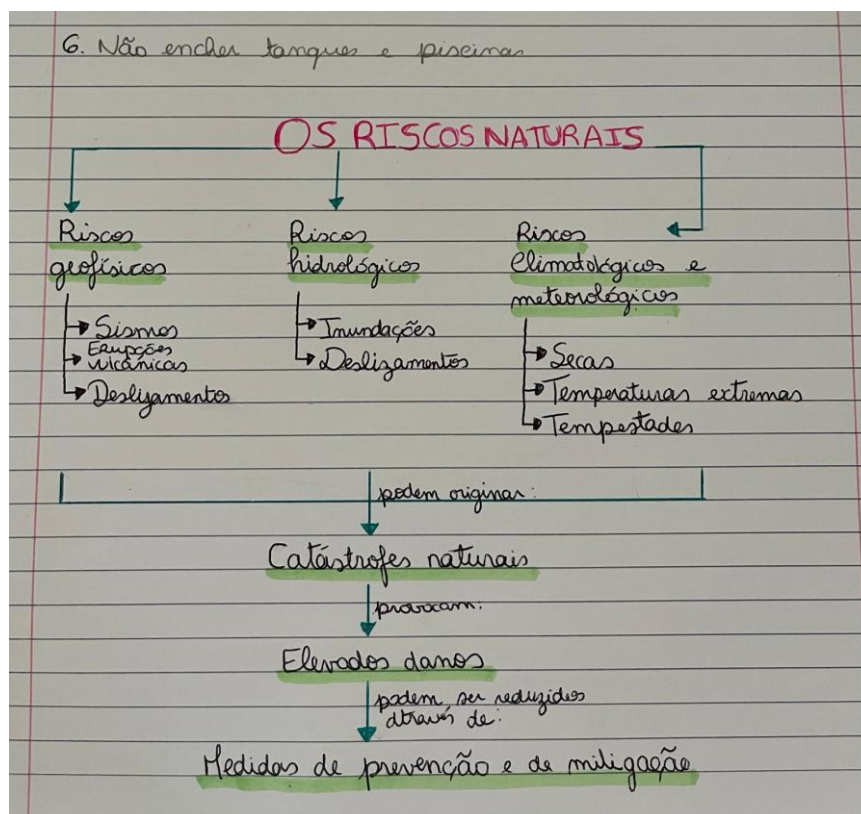 6. Não encher tanques e piscinas
OS RISCOS NATURAIS
Riscos
geofísicos
Sismos
Erupções
vulcânicas
Deslizamentos
Riscos
hidrológicos
Inundações
Deslizamentos
Riscos
climatológicos e
meteorológicos
Secas
Temperaturas extremas
Tempestades
podem originar:
Catástrofes naturais
provocam:
Elevados danos
podem ser reduzidos
através de:
Medidas de prevenção e de mitigação